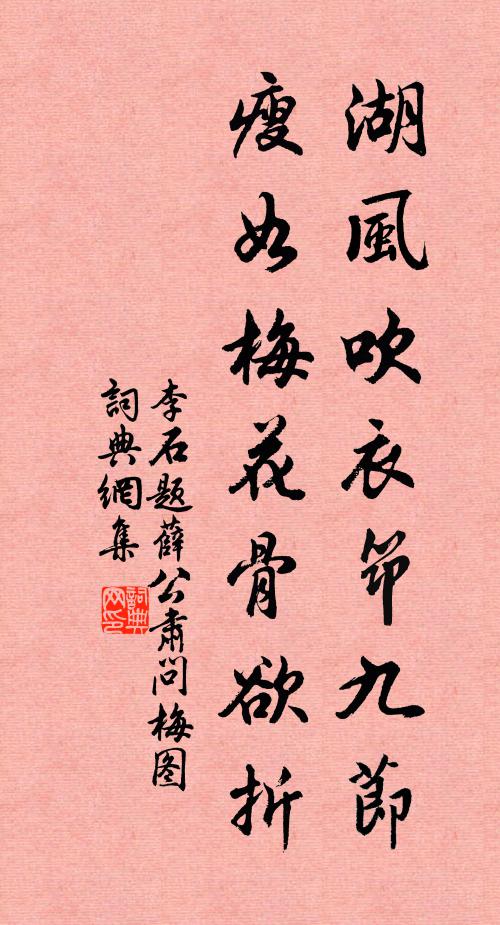 湖風吹衣笻九節
瘦如梅花骨欲折
李石题薛公肅问梅图
詞典網集
詞典网印